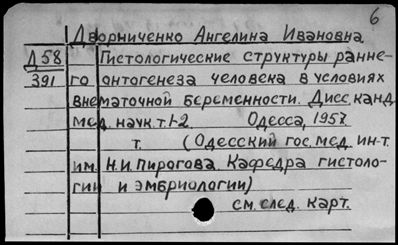 6
Дворниченко Ангелина Ивановна
Д58 Гистологические структуры ранне-
391 го онтогенеза человека в условиях
внематочной беременности. Дисс. канд.
мед. наук. т.1-2 Одесса, 1957.
т. (Одесский гос. мед. ин-т.
им. Н.И. Пирогова. Кафедра гистоло-
гии и эмбриологии)
см. след. карт.